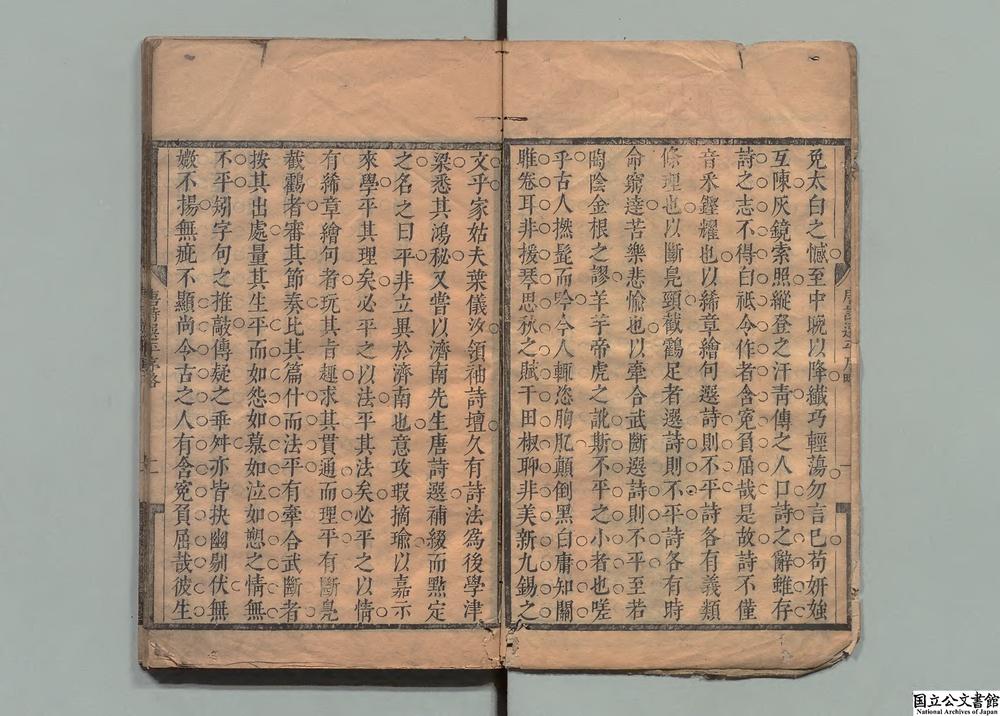 免太白之憾至中晚以降纖巧輕蕩勿言已苟妍媸
互陳灰鏡索照縱登之汗青傳之人口詩之辭雖存
詩之志不得白祇今作者含寃負屈哉是故詩不僅
音釆鏗耀也以絺章繪句選詩則不平詩各有義類
條理也以斷鳧頸截鶴足者選詩則不平詩各有時
命窮達苦樂悲愉也以牽合武斷選詩則不平至若
陶陰金根之謬羊芋帝虎之訛斯不平之小者也嗟
乎古人撚髭而吟今人輒恣胸肊顛倒黑白庸知關
雎卷耳非援琴思秋之賦干田椒聊非美新九錫之
文乎家姑夫葉儀汐領袖詩壇久有詩法為後學津
梁悉其鴻秘又嘗以濟南先生唐詩選補綴而㸃定
之名之曰平非立異於濟南也意攻瑕摘瑜以嘉示
來學平其理矣必平之以法平其法矣必平之以情
有絺章繪句者玩其旨趣求其貫通而理平有斷鳧
截鶴者審其節奏比其篇什而法平有牽合武斷者
按其出處量其生平而如怨如慕如泣如愬之情無
不平矧字句之推敲傳疑之垂舛亦皆抉幽剔伏無
媺不揚無疵不顯尚今古之人有含寃負屈哉彼生
唐詩選平序略
一
国立公文書館
National Archives of Japan